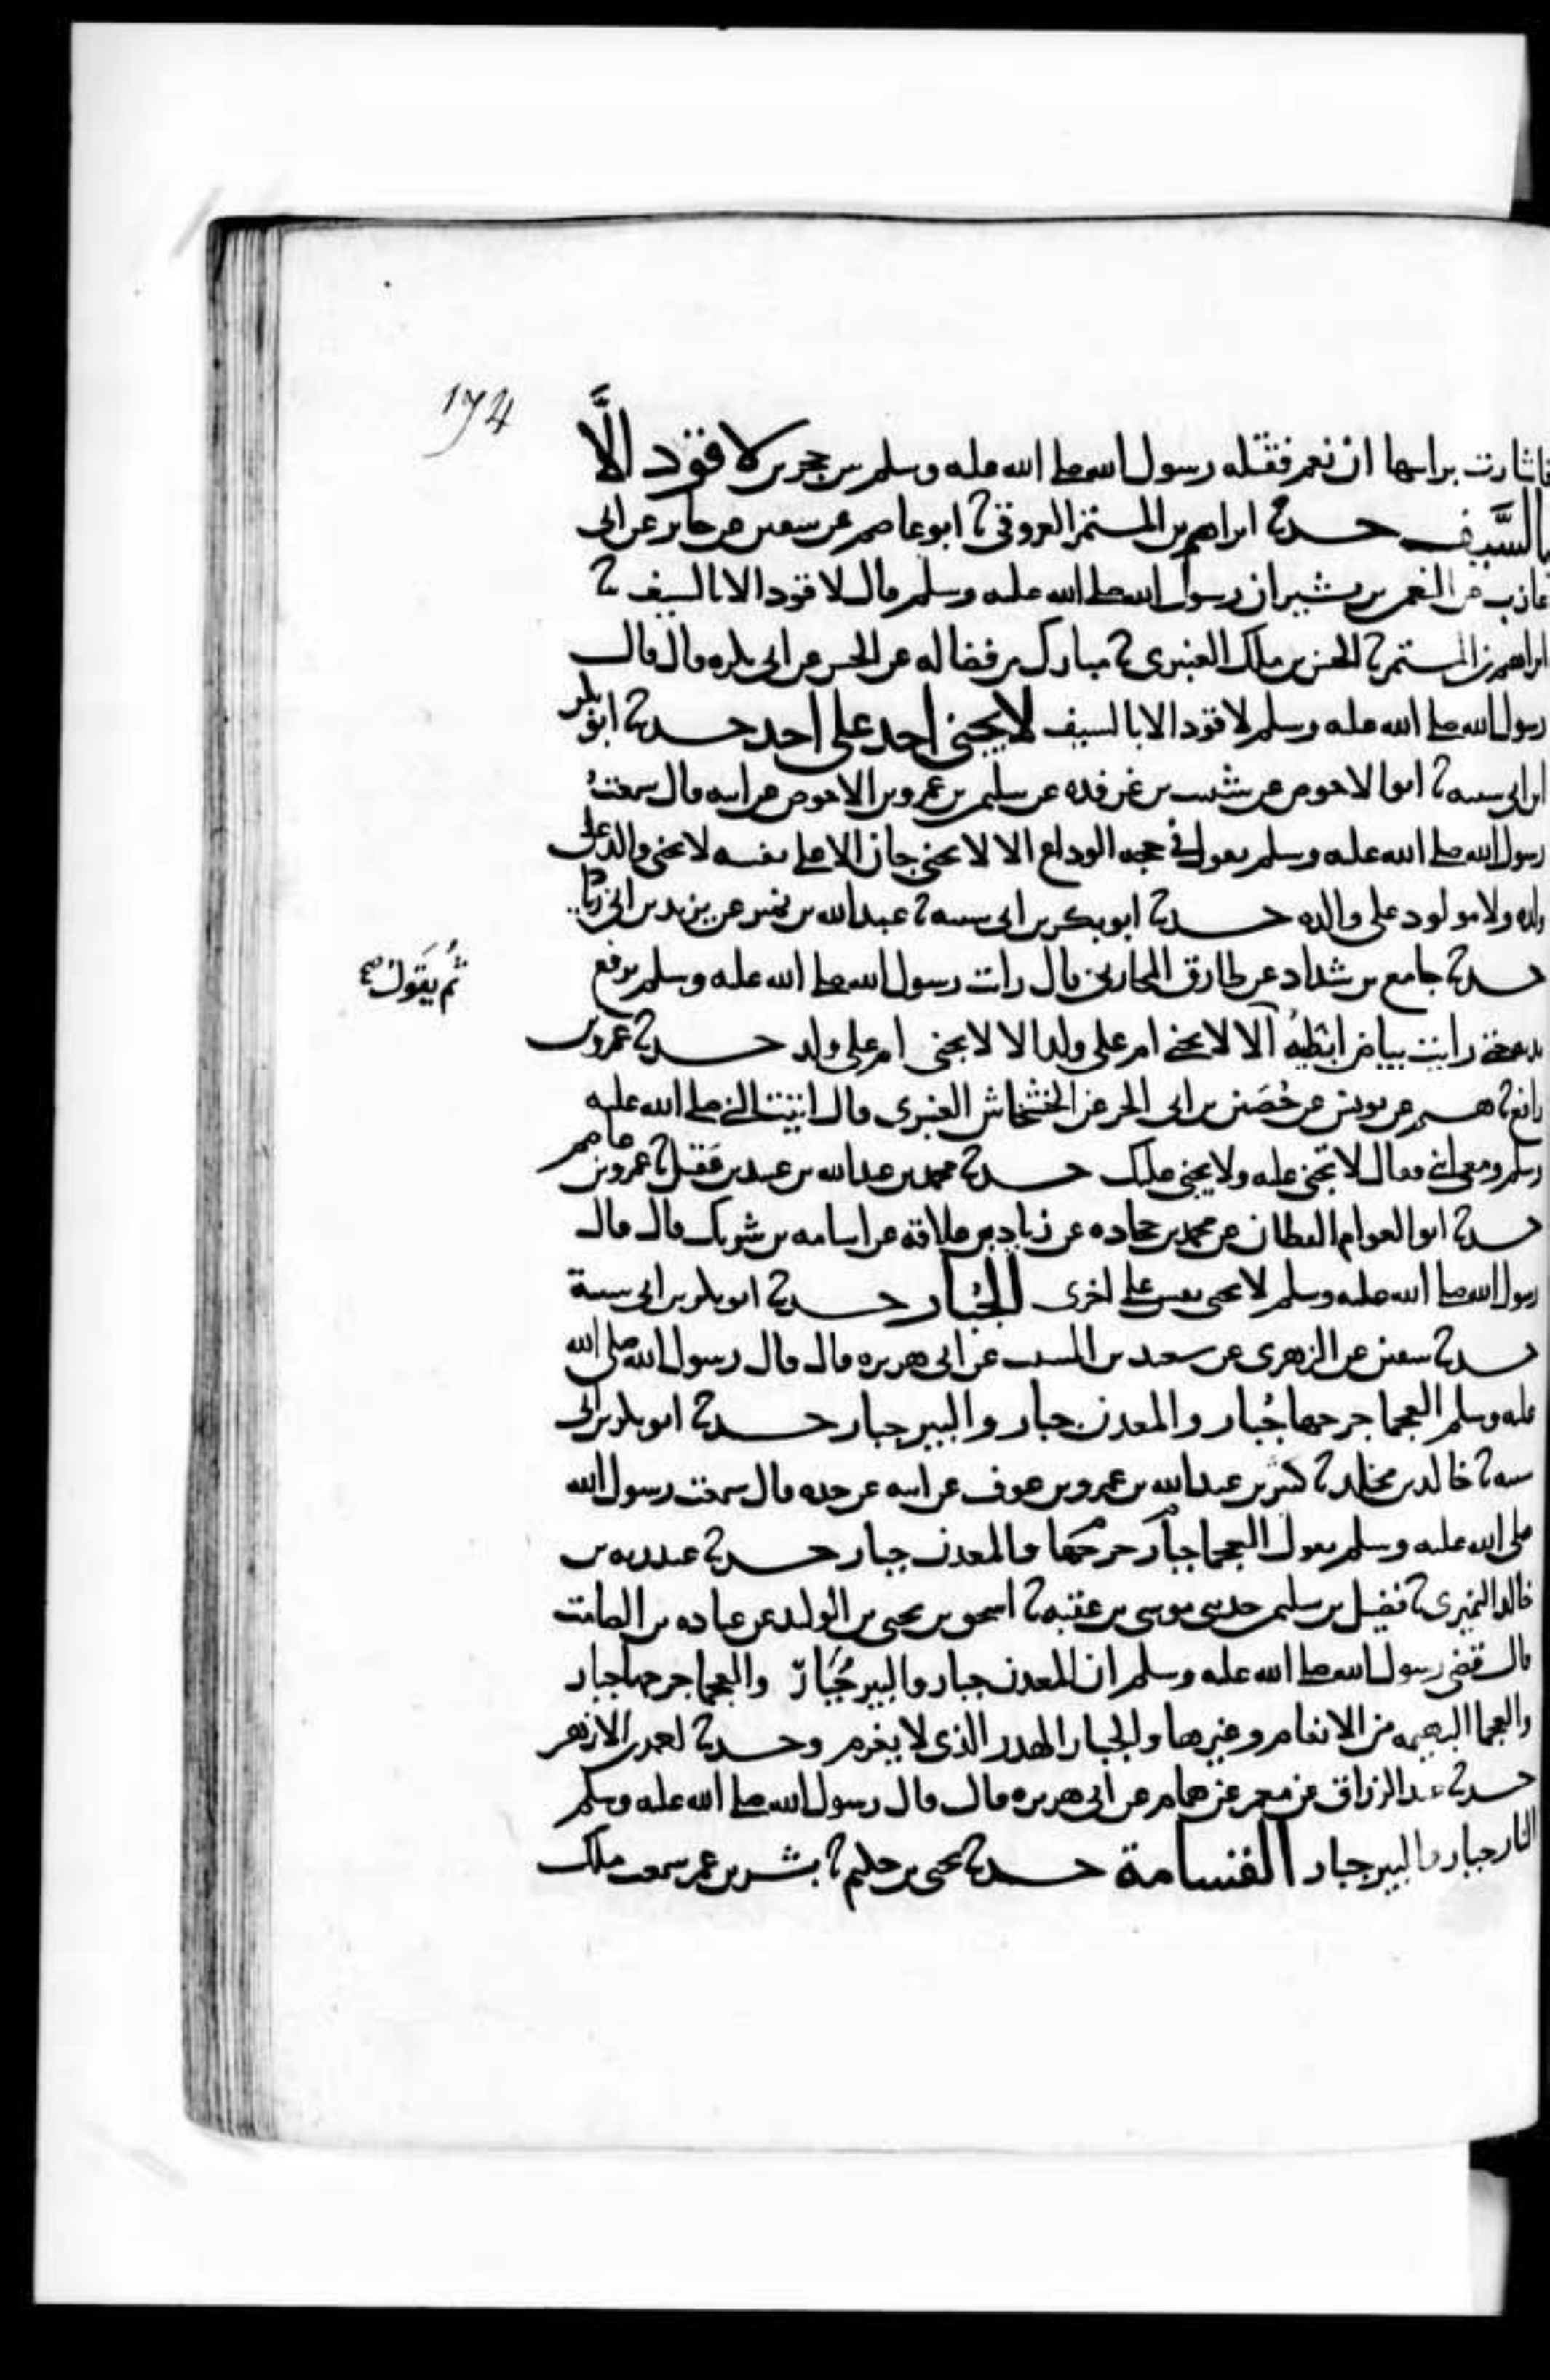 174
فاشارت براسها ان نعم فقتله رسول الله صلى الله عليه وسلم بين حجرين لا قود الا
بالسيف حدثنا ابراهيم بن المستمر العروقي ثنا ابو عاصم عن سفين عن جابر عن ابي
عازب عن النعمن بن بشير ان رسول الله صلى الله عليه وسلم قال لا قود الا بالسيف ثنا
ابراهيم بن المستمر ثنا الحسن بن ملك العنبري ثنا مبارك بن فضاله عن الحسن عن ابي بكره قال قال
رسول الله صلى الله عليه وسلم لا قود الا بالسيف لا يجني احد على احد حدثنا ابو بكر
ابن ابي شيبه ثنا ابوا الاحوص عن شبيب بن غرقده عن سليمن بن عمرو بن الاحوص عن ابيه قال سمعت
رسول الله صلى الله عليه وسلم يقول في حجه الوداع الا لا يجني جان الا على نفسه لا يجني والد على
ولده ولا مولود على والده حدثنا ابو بكر بن ابي شيبه ثنا عبد الله بن نمير عن يزيد بن ابي زياد
حدثنا جامع بن شداد عن طارق المحاربي قال رايت رسول الله صلى الله عليه وسلم يرفع
ثم يقول صح
يديه حتى رايت بياض ابطيه الا لا يجني ام على ولد الا لا يجني ام على ولد حدثنا عمرو بن
رافع ثنا هشيم عن يونس عن حصين بن ابي الحر عن الخشخاش العنبري قال اتيت النبي صلى الله عليه
وسلم ومعي ابني فقال لا تجني عليه ولا يجني عليك حدثنا محمد بن عبد الله بن عبيد بن عقيل ثنا عمرو بن عاصم
حدثنا ابو العوام القطان عن محمد بن جحاده عن زياد بن علاقة عن اسامه بن شريك قال قال
رسول الله صلى الله عليه وسلم لا تجني نفس على اخرى الجبار حدثنا ابو بكر بن ابي شيبة
حدثنا سفين عن الزهري عن سعيد بن المسيب عن ابي هريره قال قال رسول الله صلى الله
عليه وسلم العجما جرحها جبار والمعدن جبار والبير جبار حدثنا ابو بكر بن ابي
شيبه ثنا خالد بن مخلد ثنا كثير بن عبد الله بن عمرو بن عوف عن ابيه عن جده قال سمعت رسول الله
صلى الله عليه وسلم يقول العجما جبار جرحها والمعدن جبار حدثنا عبد ربه بن
خالد النميري ثنا فضيل بن سليمن حدثني موسى بن عقبه ثنا اسحق بن يحيى بن الوليد عن عباده بن الصامت
قال قضى رسول الله صلى الله عليه وسلم ان المعدن جبار والبير جبار والعجما جرحها جبار
والعجما البهيمه من الانعام وغيرها والجبار الهدر الذي لا يغرم وحدثنا احمد بن الازهر
حدثنا عبد الرزاق عن معمر عن همام عن ابي هريره قال قال رسول الله صلى الله عليه وسلم
النار جبار والبير جبار القسامة حدثنا يحيى بن حكيم ثنا بشر بن عمر سمعت ملك